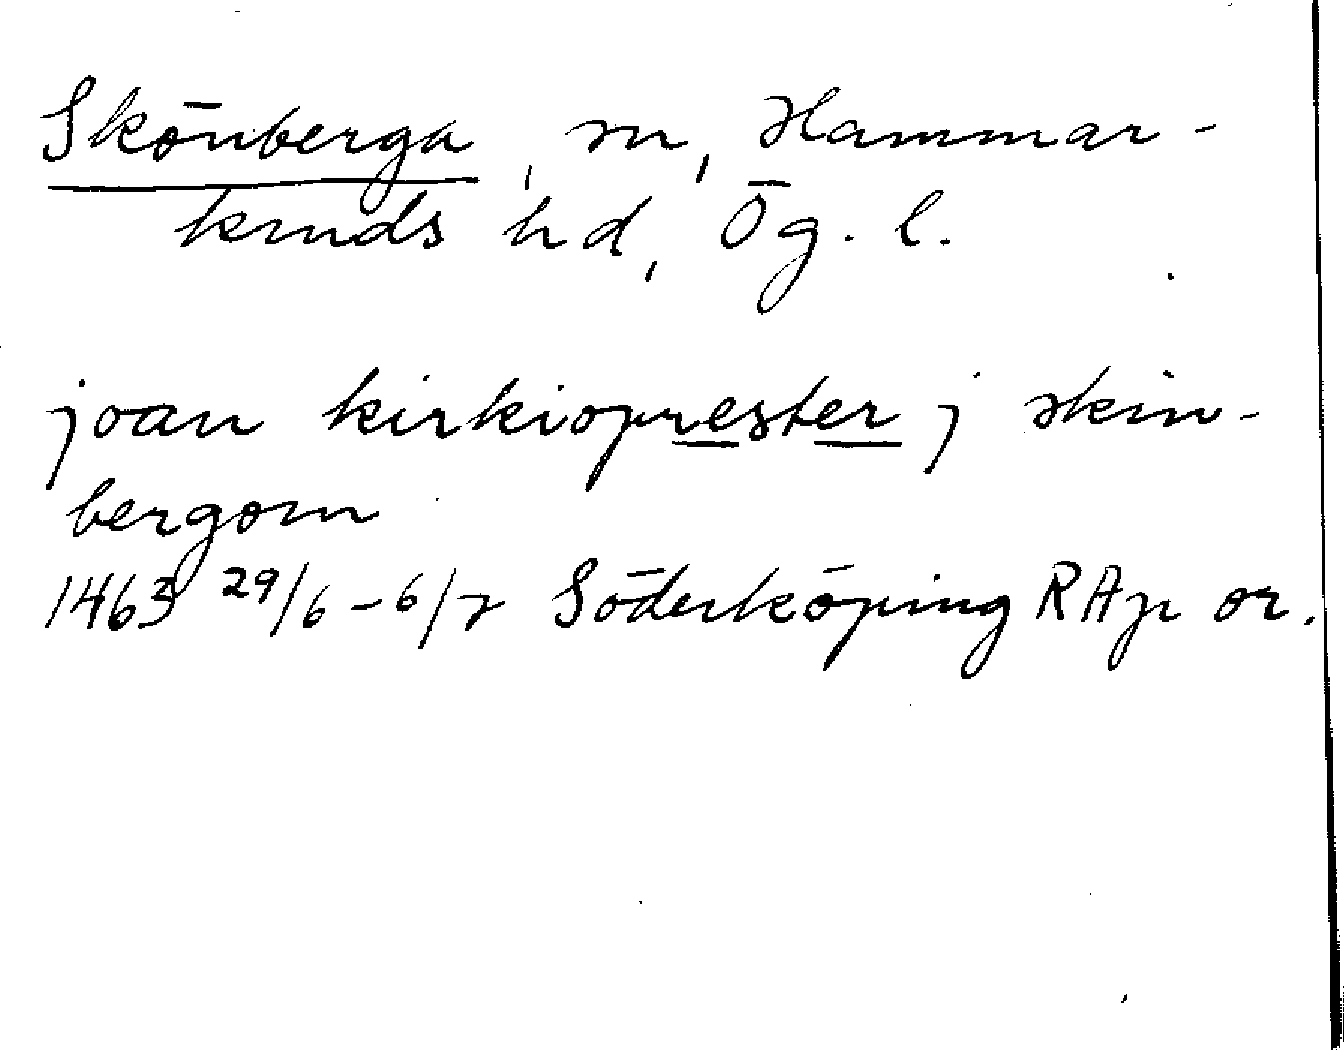 Skönberga, sn, Hammar-
kinds hd, Ög. l.
joan kirkioprester j skin-
bergom
1463 29/6-6/7 Söderköping RAp or.